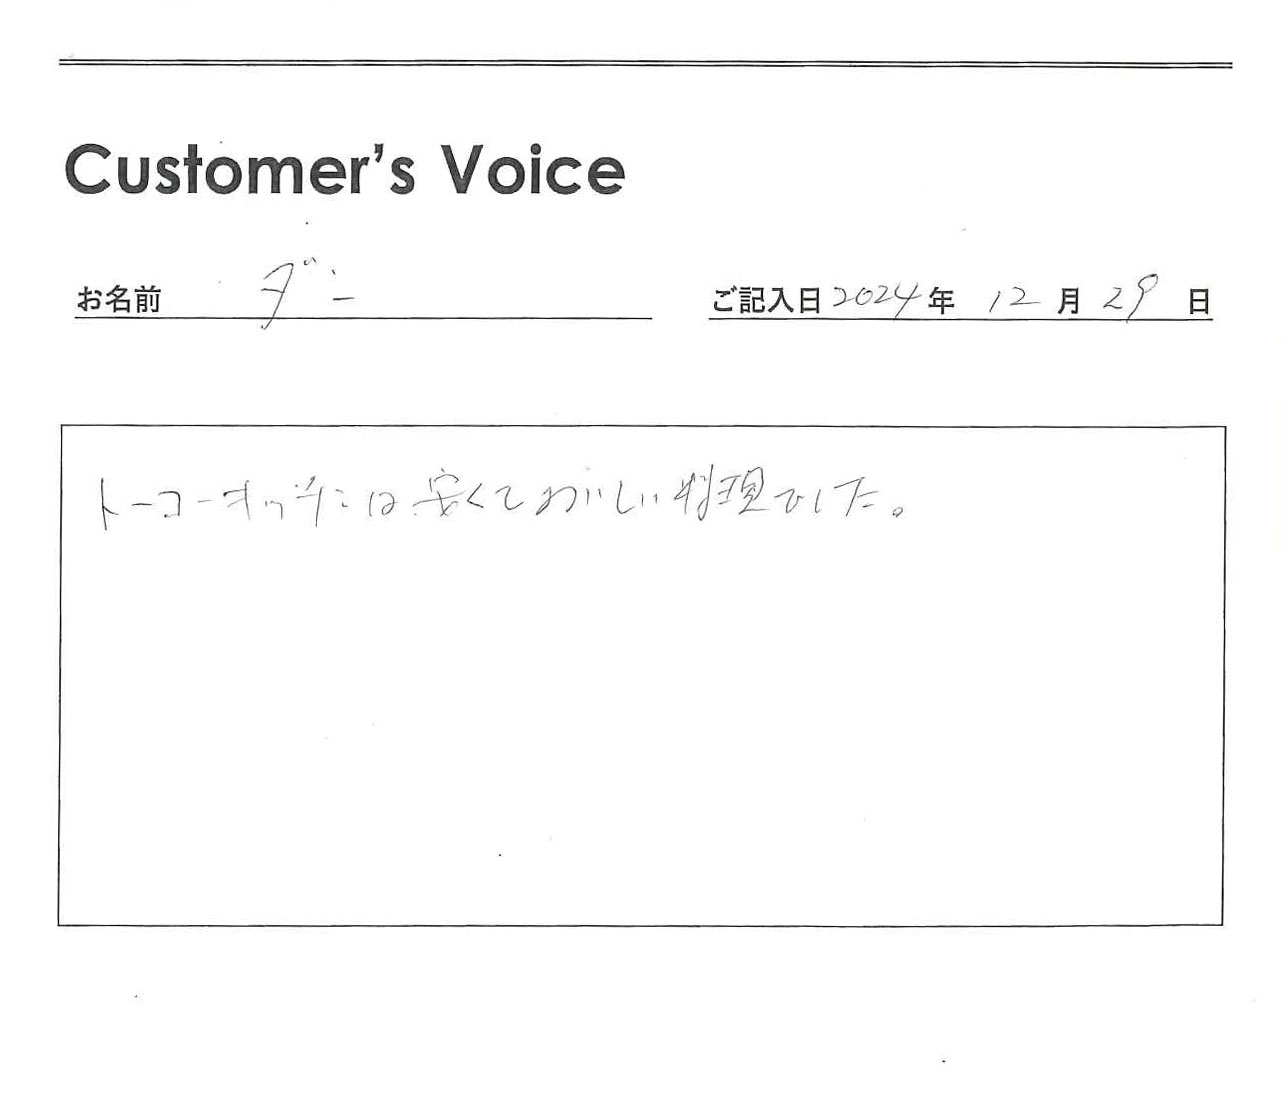 Customer's Voice
お名前 ダン
ご記入日 2024 年 12 月 29 日
は安くておいしい料理でした。